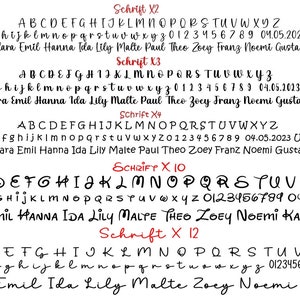 Schrift X2
A B C D E F G H I J K L M N O P Q R S T U V W X Y Z
f g h i j k l m n o p q r s t u v w x y z 0 1 2 3 4 5 6 7 8 9 04.05.202
ara Emil Hanna Ida Lily Malte Paul Theo Zoey Franz Noemi Gusta
Schrift X3
A B C D E F G H I J K L M N O P Q R S T U V W X Y Z
g h i j k l m n o p q r s t u v w x y z 0 1 2 3 4 5 6 7 8 9 04.05.2023
ra Emil Hanna Ida Lily Malte Paul Theo Zoey Franz Noemi Gusta
Schrift X4
A B C D E F G H I J K L M N O P Q R S T U V W X Y Z
f g h i j k l m n o p q r s t u v w x y z 0 1 2 3 4 5 6 7 8 9 04.05.2023
ara Emil Hanna Ida Lily Malte Paul Theo Zoey Franz Noemi Gusta
Schrift X 10
D E F G H I J K L M N O P Q R S T U V
h i j k l m n o p q r s t u v w x y z 0123456789 04.0
mil Hanna Ida Lily Malte Theo Zoey Noemi Ka
Schrift X 12
E F G H I J K L M N O P Q R S T U V
g h i j k l m n o p q r s t u v w x y z 0123456
Emil Ida Lily Malte Zoey Noemi